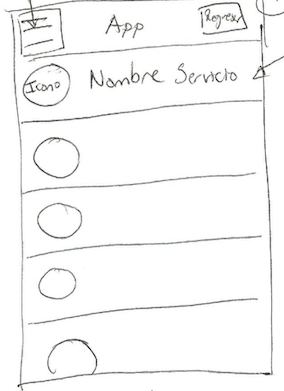 App
Regresar
Icono
Nombre Servicio